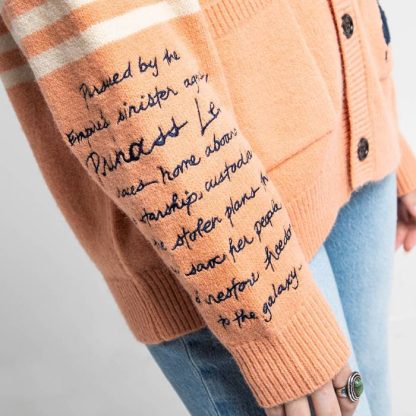 Pursued by the
Empire's sinister age
Princess Le
races home aboar
starship, custodi
e stolen plans t
save her people
restore freedo
to the galaxy.